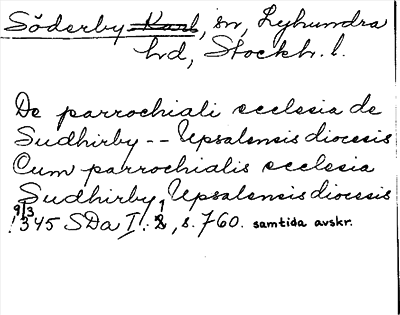 Söderby Karl, sn, Lyhundra
hd, Stockh. l.
De parrochiali ecclesia de
Sudhirby -- Upsalensis diocesis
Cum parrochialis ecclesia
Sudhirby, Upsalensis diocesis
9/3 1345 SDa I:1, s. 760. samtida avskr.